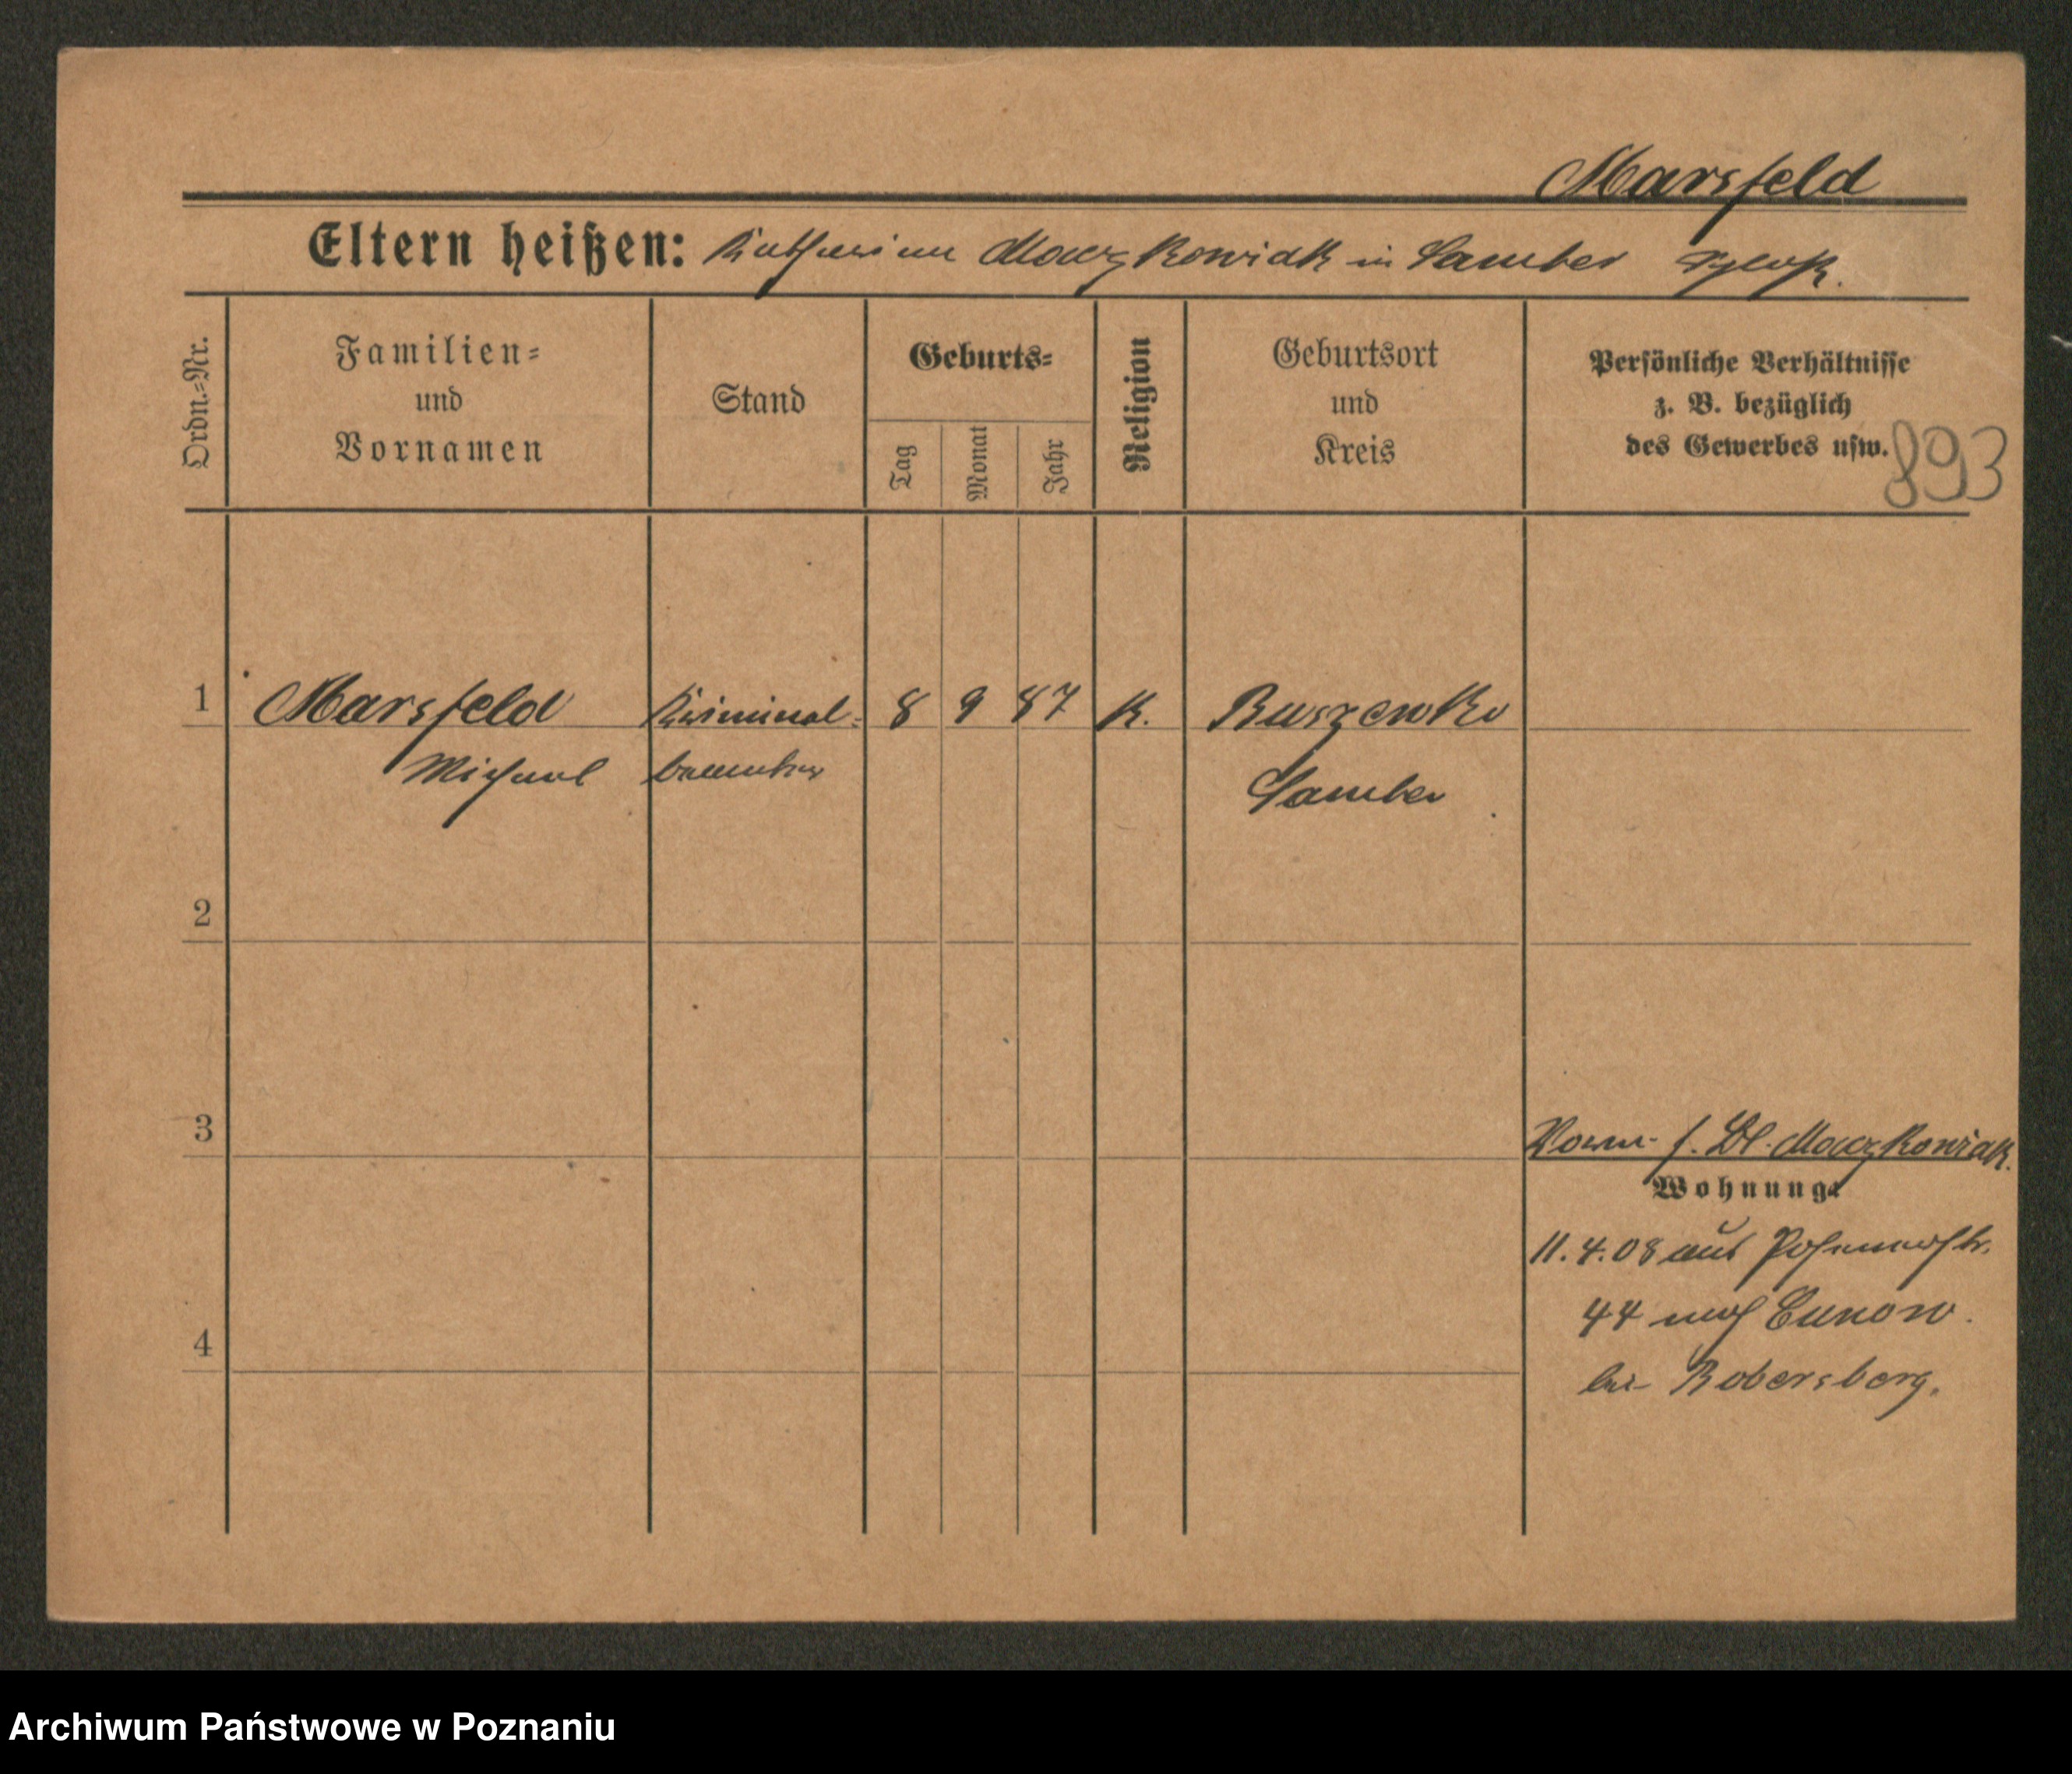 Marsfeld
Eltern heißen: Katharina Maczkowiak in Samter
Ordn.-Nr.
Familien-
und
Vornamen
Stand
Geburts-
Tag
Monat
Jahr
Religion
Geburtsort
und
Kreis
Persönliche Verhältnisse
z. B. bezüglich
des Gewerbes usw.
893
1 Marsfeld Kriminal- 8 9 87 K. Buszewko
Michael beamter Samter
2
3
Vorm. f. Bl. Maczkowiak.
Wohnung:
11.4.08 aus Posenerstr.
44 nach Cunow.
4
bei Bobersberg.
Archiwum Państwowe w Poznaniu